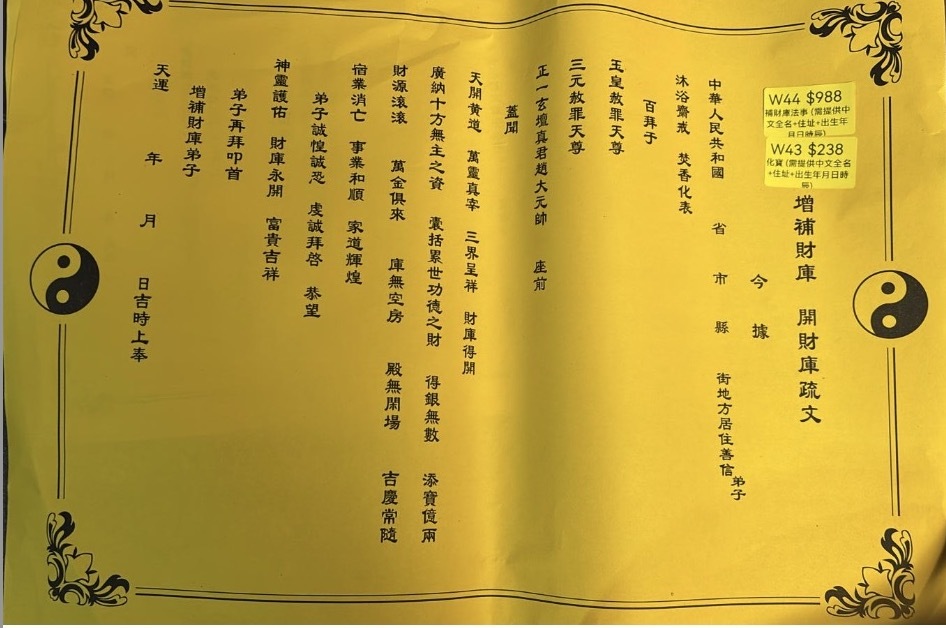 W44 $988
補財庫法事 (需提供中
文全名+住址+出生年
月日時辰)
W43 $238
化寶 (需提供中文全名
+住址+出生年月日時
辰)
增補財庫 開財庫疏文
今據
中華人民共和國 省 市 縣 街地方居住善信弟子
沐浴齋戒 焚香化表
百拜于
玉皇赦罪天尊
三元赦罪天尊
正一玄壇真君趙大元帥 座前
蓋聞
天開黃道 萬靈真宰 三界呈祥 財庫得開
廣納十方無主之資 囊括累世功德之財 得銀無數 添寶億兩
財源滾滾 萬金俱來 庫無空房 殿無閑場 吉慶常隨
宿業消亡 事業和順 家道輝煌
弟子誠惶誠恐 虔誠拜啓 恭望
神靈護佑 財庫永開 富貴吉祥
弟子再拜叩首
增補財庫弟子
天運 年 月 日吉時上奉